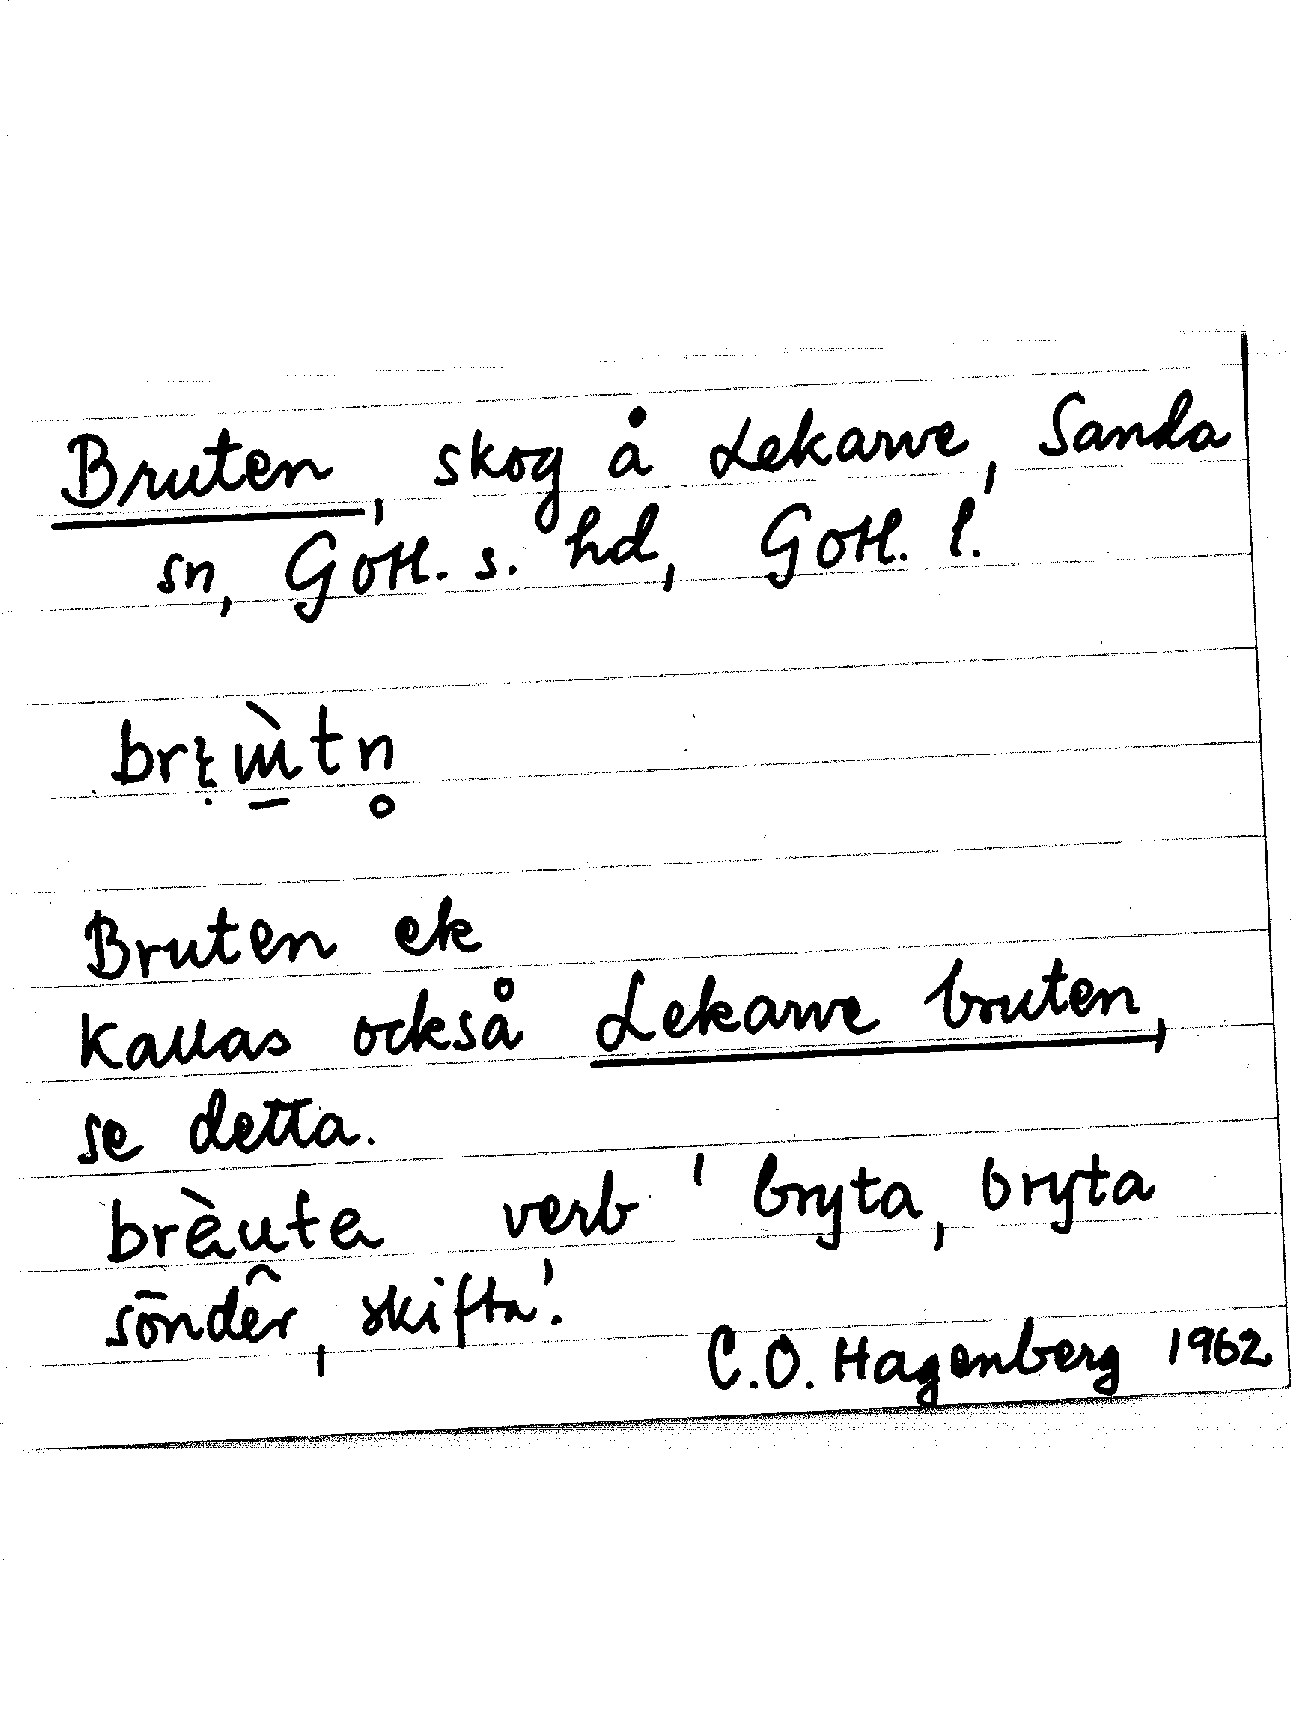 Bruten, skog å Lekarve, Sanda
sn, Gotl. s. hd, Gotl. l.
Bruten ek
kallas också Lekarve bruten,
se detta.
bràuta verb 'bryta, bryta
söndêr, skifta'.
C.O. Hagenberg 1962